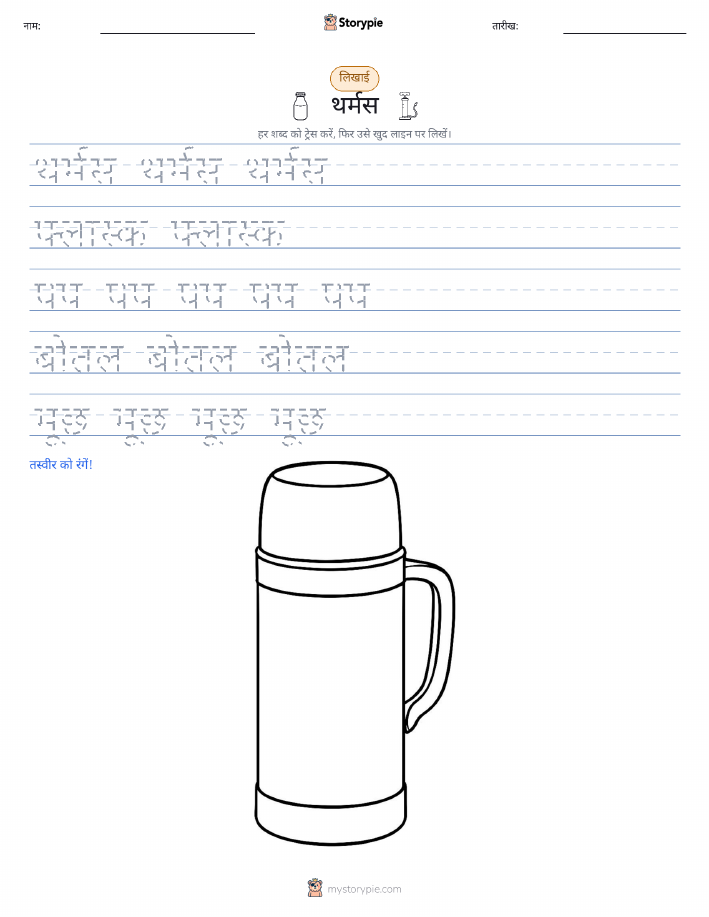 नाम:
Storypie
तारीख:
लिखाई
थर्मस
हर शब्द को ट्रेस करें, फिर उसे खुद लाइन पर लिखें।
थर्मस थर्मस थर्मस
फ्लास्क फ्लास्क
पप पप पप पप पप
बोतल बोतल बोतल
तस्वीर को रंगें!
mystorypie.com